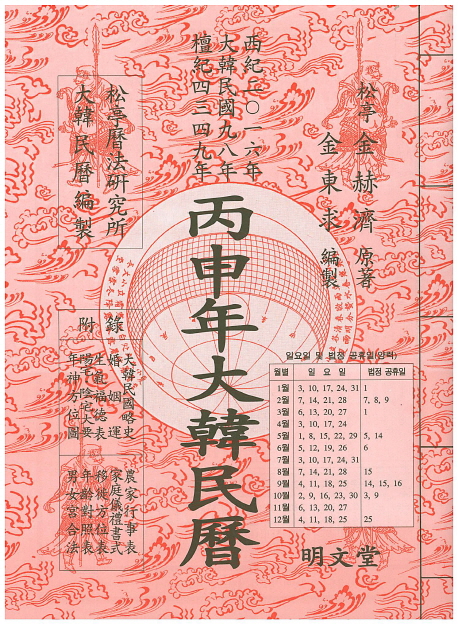 松亭 金赫濟 原著
金東求 編製
西紀二〇一六年
大韓民國九八年
檀紀四三四九年
松亭曆法硏究所
大韓民曆編製
丙申年大韓民曆
附 錄
大韓民國略史
婚姻運
生氣福德表
陽宅陰宅大要
年神方位圖
農家行事表
家庭儀禮書式
移徙方位表
年齡對照表
男女宮合法
일요일 및 법정 공휴일(양력)
월별 일 요 일 법정 공휴일
1월 3, 10, 17, 24, 31 1
2월 7, 14, 21, 28 7, 8, 9
3월 6, 13, 20, 27 1
4월 3, 10, 17, 24
5월 1, 8, 15, 22, 29 5, 14
6월 5, 12, 19, 26 6
7월 3, 10, 17, 24, 31
8월 7, 14, 21, 28 15
9월 4, 11, 18, 25 14, 15, 16
10월 2, 9, 16, 23, 30 3, 9
11월 6, 13, 20, 27
12월 4, 11, 18, 25 25
明文堂